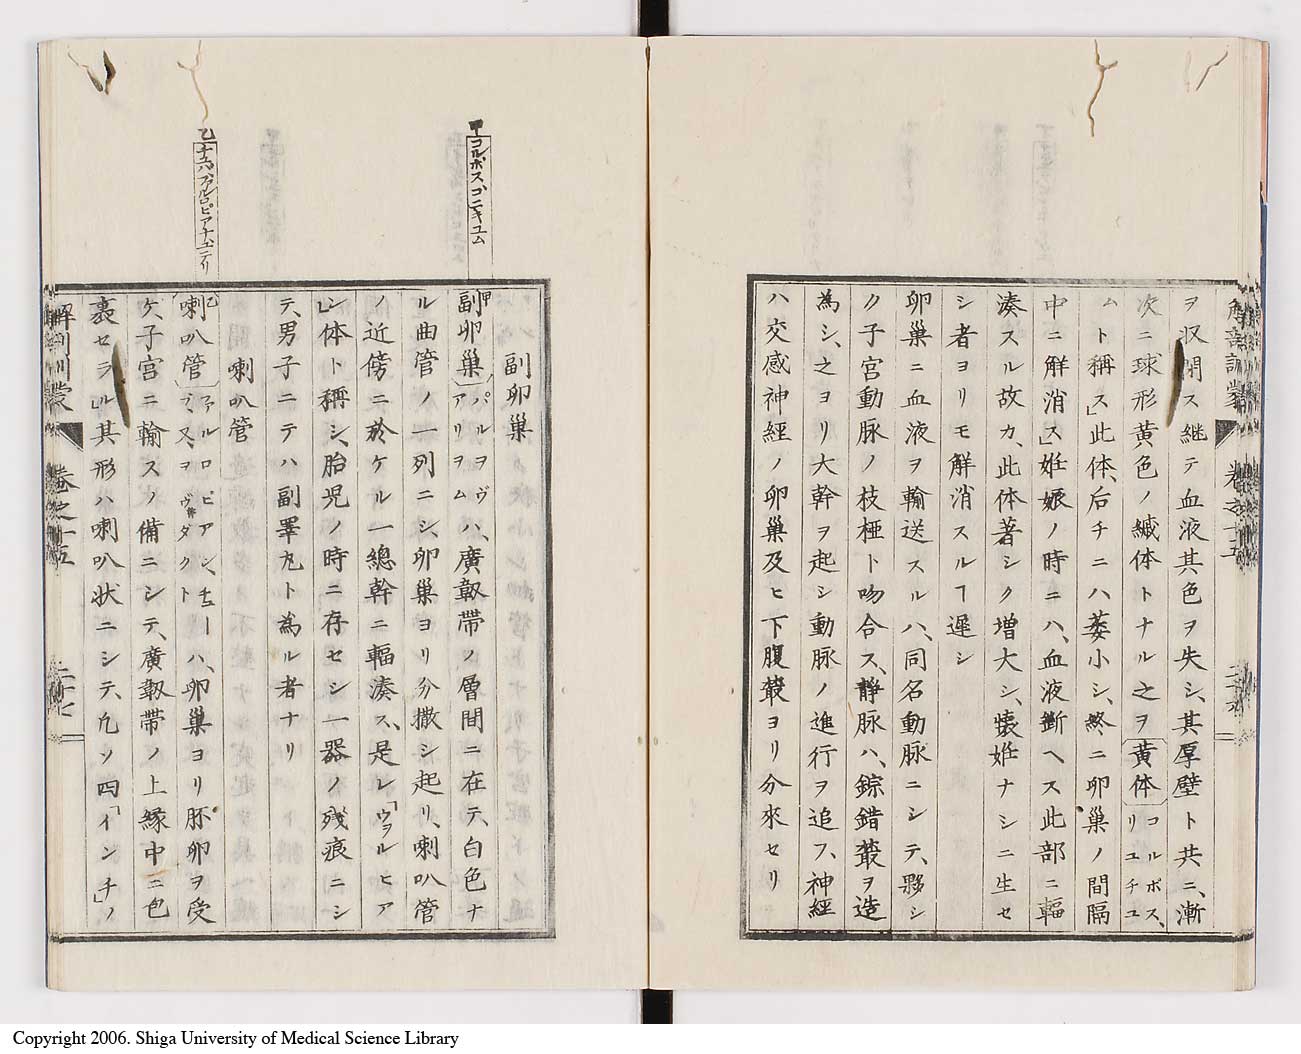 ヲ収閉ス継テ血液其色ヲ失シ、其厚壁ト共ニ、漸
次ニ球形黄色ノ緘体トナル之ヲ黄体コルポス、リユチユ
ムト稱ス」此体、后チニハ萎小シ、終ニ卯巢ノ間隔
中ニ解消ス」姙娠ノ時ニハ、血液断ヘス此部ニ輻
湊スル故カ、此体著シク増大シ、懐姙ナシニ生セ
シ者ヨリモ解消スルヿ遲シ
卯巢ニ血液ヲ輸送スルハ、同名動脉ニシテ、夥シ
ク子宮動脉ノ枝極ト吻合ス、静脉ハ、錯綜叢ヲ造
為シ、之ヨリ大幹ヲ起シ動脉ノ進行ヲ追フ、神経
ハ交感神経ノ卯巢及ヒ下腹叢ヨリ分來セリ
甲コルポス、コニキユム
副卯巢
甲副卯巢パルヲヴアリヲムハ、廣靱帯ノ層間ニ在テ、白色ナ
ル曲管ノ一列ニシ、卯巢ヨリ分撒シ起リ、喇叭管
ノ近傍ニ於ケル一總幹ニ輻湊ス、是レ「ウヲルヒア
ン」体ト稱シ、胎児ノ時ニ存セシ一器ノ残痕ニシ
テ、男子ニテハ副睪丸ト為ル者ナリ
喇叭管
乙喇叭管ファルロピアン、チューブ、又、ヲヴ井ダクトハ、卯巢ヨリ胚卯ヲ受
ケ、子宮ニ輸スノ備ニシテ、廣靱帯ノ上縁中ニ包
裹セラル」其形ハ喇叭状ニシテ、凢ソ四「インチ」ノ
解剖訓蒙 巻之十五